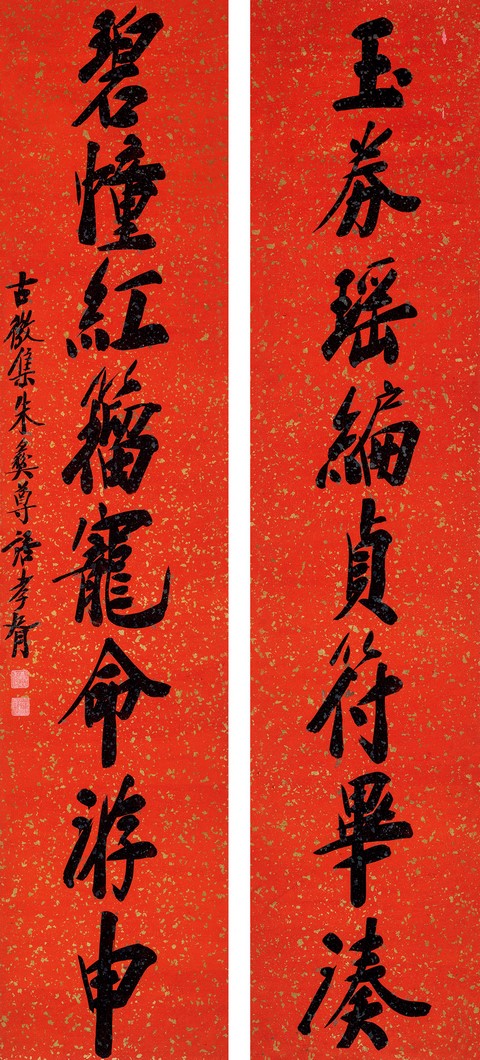 玉券瑶編貞符畢湊
碧幢紅籀寵命洊申
古微集朱彝尊語孝胥